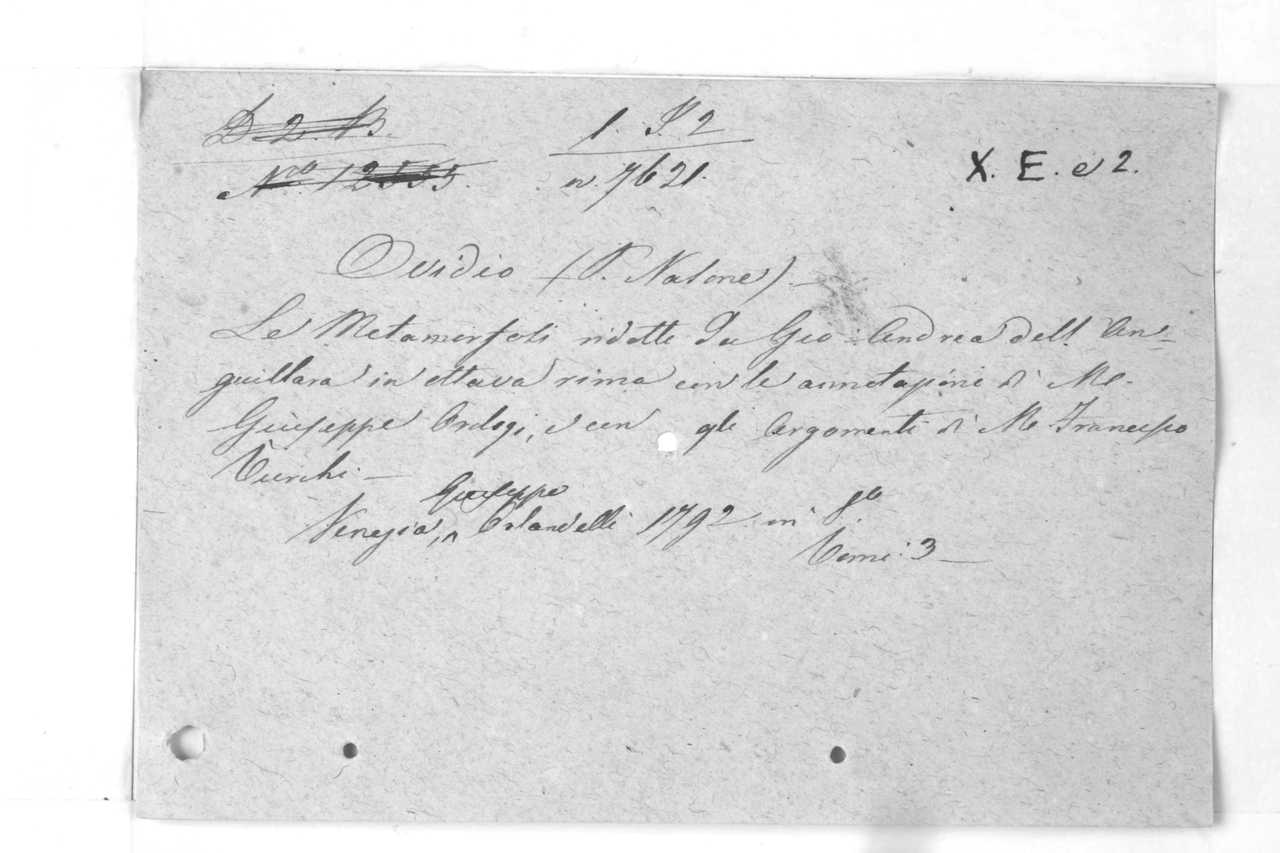 D. 2. B. 1. S. 2 X. E. e 2.
Nro. 12555. n. 7621.
Ovidio (P. Nasone) —
Le Metamorfosi ridotte da Gio: Andrea dell' An=
guillara in ottava rima con le annotazioni di M.
Giuseppe Orologi, e con gli Argomenti di M. Francesco
Turchi —
Venezia, Giuseppe Orlandelli 1792 in 8.o
Tomi: 3 —